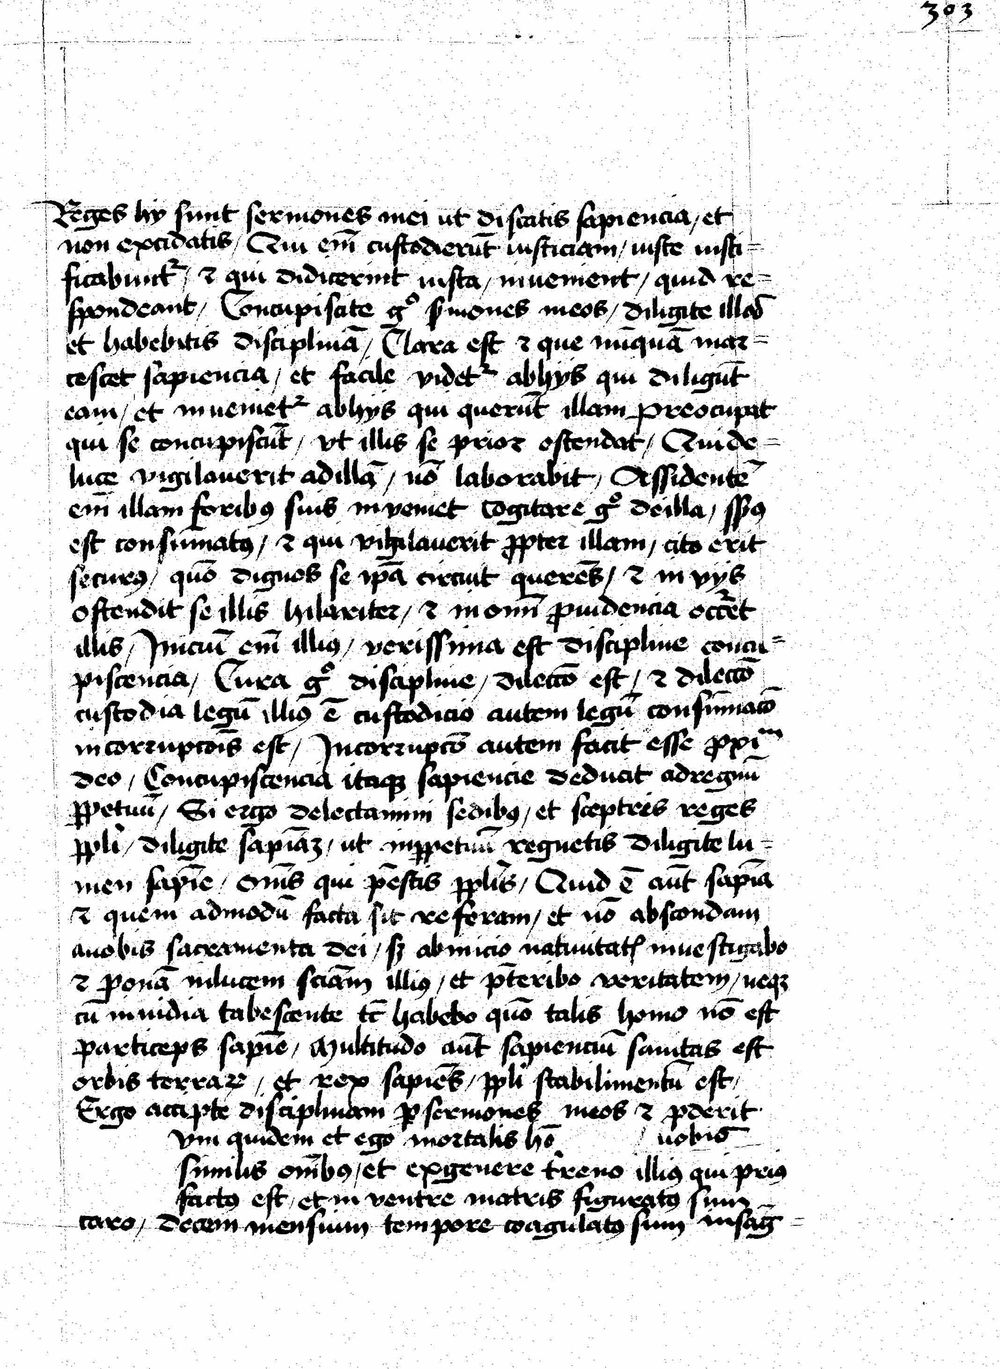 303
Reges hy sunt sermones mei ut discatis sapiencia / et
non excidatis / Qui em̄ custodierūt iusticiam / iuste iusti=
ficabunt᷑ / ⁊ qui didicerint iusta / invenient / quid re=
spondeant / Concupiscite gͦ s̄mones meos / diligite illos
et habebitis disciplinā / Clara est ⁊ que nūquā mar=
cescet sapiencia / et facile videt᷑ abhys qui diligūt
eam / et inveniet᷑ abhys qui querūt illam preocupat
qui se concupiscūt / vt illis se prior ostendat / Qui de=
luce vigilaverit adillā / nō laborabit / Assidentē
em̄ illam foribꝯ suis inveniet Cogitare gͦ deilla / ssꝯ
est consūmatꝯ / ⁊ qui vihilaverit ꝓpter illam / cito erit
securꝯ / quō dignos se ip̄a circuit querēs / ⁊ in vys
ostendit se illis hilariter / ⁊ in om̄i ꝓvidencia occ̄ret
illis / Iniciū em̄ illiꝯ / verissima est discipline concu=
piscencia / Cura gͦ discipline / dilecc̄o est / ⁊ dilecc̄o
custodia legū illiꝯ ē custodicio autem legū consūmac̄o
incorrupc̄ois est / Incorrupc̄o autem facit esse ꝓxiᵐᵘ
deo / Concupiscencia itaqꝫ sapiencie deducit adregnū
ꝑpetuū / Si ergo delectamini sedibꝯ / et sceptris reges
pp̄li / diligite sapīaꝫ / ut inꝑpetuū regnetis diligite lu=
men sapīe / Om̄is qui p̄estis pp̄lis / Quid ē aūt sapīa
⁊ quem admodū facta sit referam / et nō abscondam
avobis sacramenta dei / sꝫ abinicio nativitatꝭ investigabo
⁊ ponā inlucem sciām illiꝯ / et p̄teribo veritatem / neqꝫ
cū invidia tabescente it̄ habebo quō talis homo nō est
particeps sapīe / Multitudo aūt sapienciū sanitas est
orbis terraꝝ / et rex sapiēs / pp̄li stabilimentū est /
Ergo accipite disciplinam ꝑ sermones meos ⁊ ꝓderit
vm quidem et ego mortalis hō / vobis
similis om̄ibꝯ / et exgenere t̄reno illiꝯ qui priꝯ
factꝯ est / et in ventre matris figuratꝯ sum
caro / decem mensium tempore coagulatꝯ sum insāg=